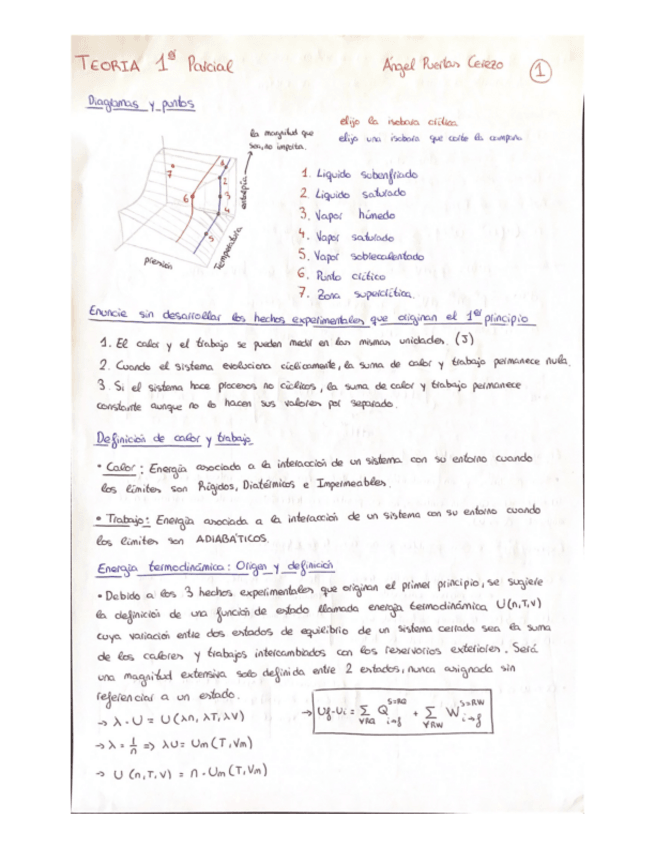 TEORIA 1er Parcial
Ángel Puertas Cerezo
1
Diagramas y puntos
elijo la isobara crítica
elijo una isobara que corte la campana
la magnitud que
sea, no importa.
entalpía
temperatura
presión
1
2
3
4
5
6
7
1. Líquido subenfriado
2. Líquido saturado
3. Vapor húmedo
4. Vapor saturado
5. Vapor sobrecalentado
6. Punto crítico
7. Zona supercrítica.
Enuncie sin desarrollar los hechos experimentales que originan el 1er principio
1. El calor y el trabajo se pueden medir en las mismas unidades. (J)
2. Cuando el sistema evoluciona cíclicamente, la suma de calor y trabajo permanece nula.
3. Si el sistema hace procesos no cíclicos, la suma de calor y trabajo permanece
constante aunque no lo hacen sus valores por separado.
Definición de calor y trabajo
• Calor: Energía asociada a la interacción de un sistema con su entorno cuando
los límites son Rígidos, Diatérmicos e Impermeables.
• Trabajo: Energía asociada a la interacción de un sistema con su entorno cuando
los límites son ADIABÁTICOS.
Energía termodinámica: Origen y definición
• Debido a los 3 hechos experimentales que originan el primer principio, se sugiere
la definición de una función de estado llamada energía termodinámica U(n,T,V)
cuya variación entre dos estados de equilibrio de un sistema cerrado sea la suma
de los calores y trabajos intercambiados con los reservorios exteriores. Será
una magnitud extensiva solo definida entre 2 estados, nunca asignada sin
referenciar a un estado.
→ λ·U = U(λn, λT, λV)
→ Uf-Ui = Σ∀RQ Q i→f S≤RQ + Σ∀RW W i→f S≤RW
→ λ = 1/n => λU = Um(T,Vm)
→ U(n,T,V) = n·Um(T,Vm)